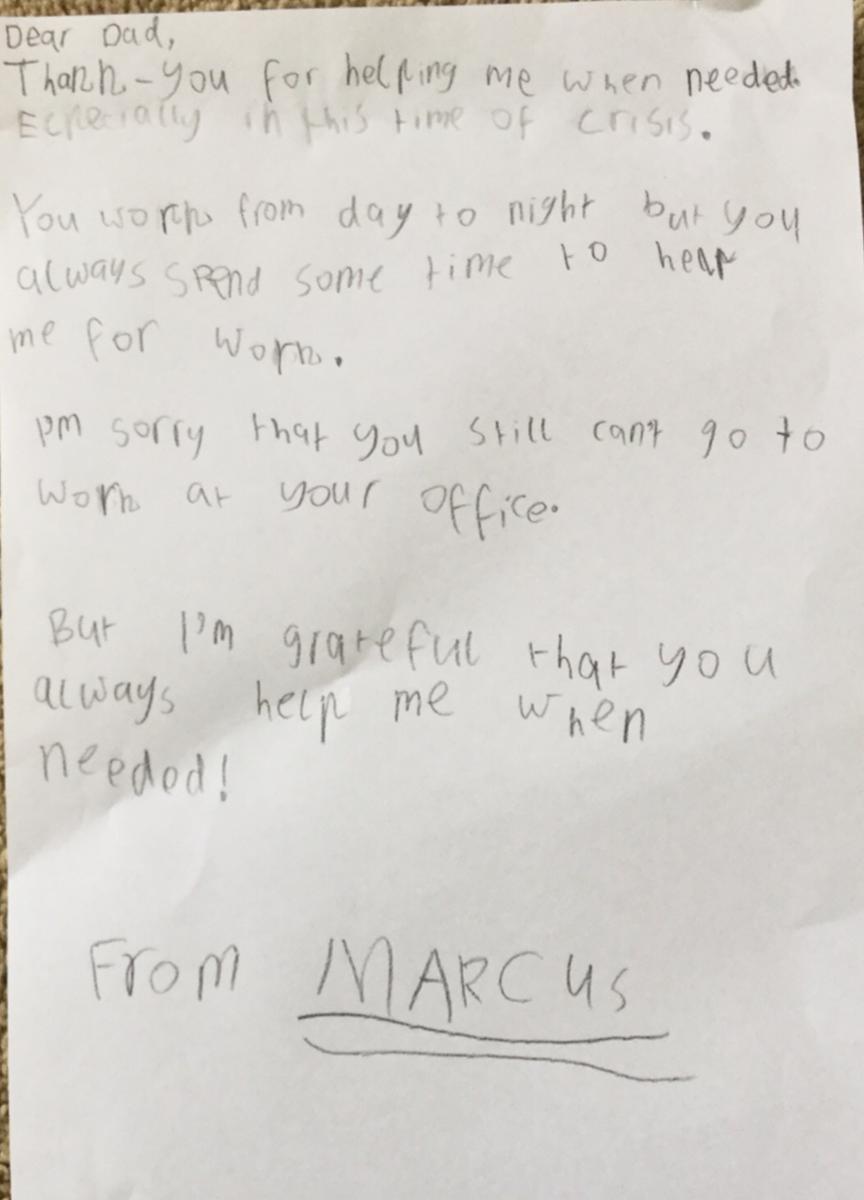 Dear Dad,
Thank-you for helping me when needed.
Ecpecially in this time of crisis.
You work from day to night but you
always spend some time to help
me for work.
I'm sorry that you still can't go to
work at your office.
But I'm grateful that you
always help me when
needed!
From MARCUS